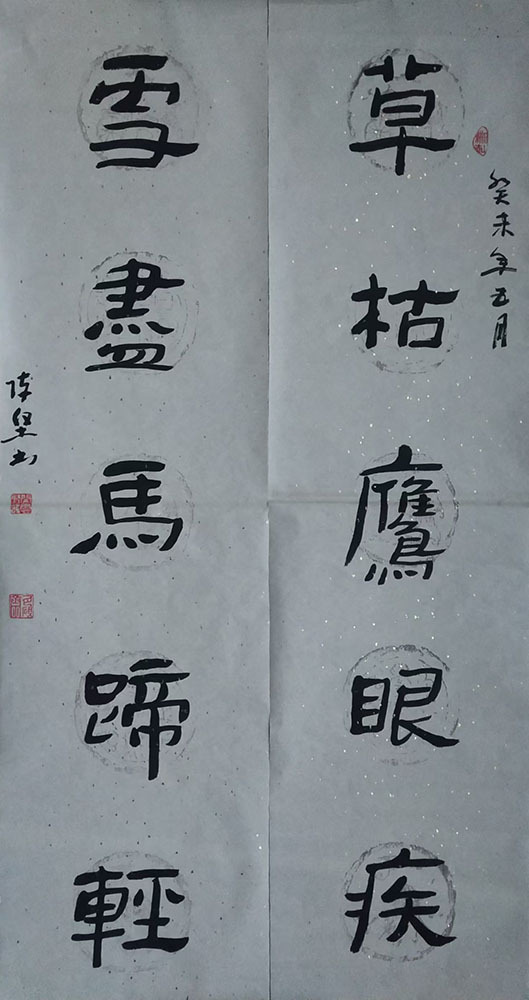 癸未年五月
草枯鷹眼疾
雪盡馬蹄輕